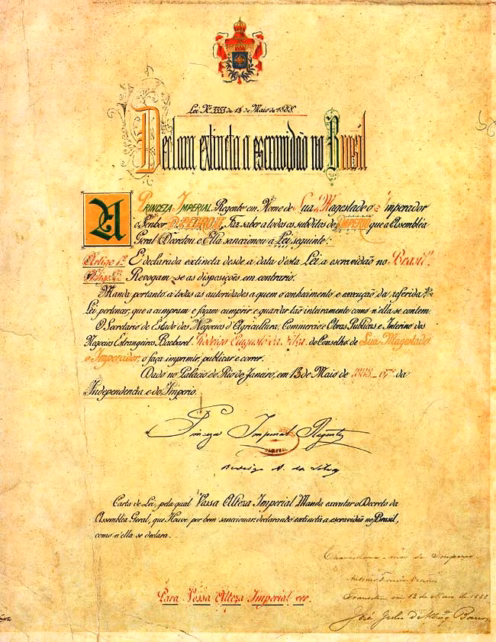 Lei Nº 3353 de 13 de Maio de 1888.
Declara extincta a escravidão no Brasil
A PRINCEZA IMPERIAL, Regente em Nome de Sua Magestade o Imperador
o Senhor D. PEDRO II, Faz saber a todos os subditos do IMPERIO que a Assembléa
Geral Decretou e Ella sanccionou a Lei seguinte:
Artigo 1º É declarada extincta desde a data d'esta Lei a escravidão no Brazil.
Artigo 2º Revogam-se as disposições em contrario.
Manda portanto a todas as autoridades a quem o conhecimento e execução da referida
Lei pertencer, que a cumpram e façam cumprir e guardar tão inteiramente como n'ella se contem.
O Secretario de Estado dos Negocios d'Agricultura, Commercio e Obras Publicas e Interino dos
Negocios Estrangeiros, Bacharel Rodrigo Augusto da Silva, do Conselho de Sua Magestade
o Imperador, o faça imprimir, publicar e correr.
Dado no Palacio do Rio de Janeiro, em 13 de Maio de 1888, 67º da
Independencia e do Imperio.
Princeza Imperial Regente
Rodrigo A. da Silva
Carta de Lei, pela qual Vossa Alteza Imperial Manda executar o Decreto da
Assembléa Geral, que Houve por bem sanccionar, declarando extincta a escravidão no Brazil,
como n'ella se declara.
Para Vossa Alteza Imperial ver.
Chancellaria-mór do Imperio
Antonio Ferreira Vianna
Transitou em 13 de Maio de 1888
José Julio de